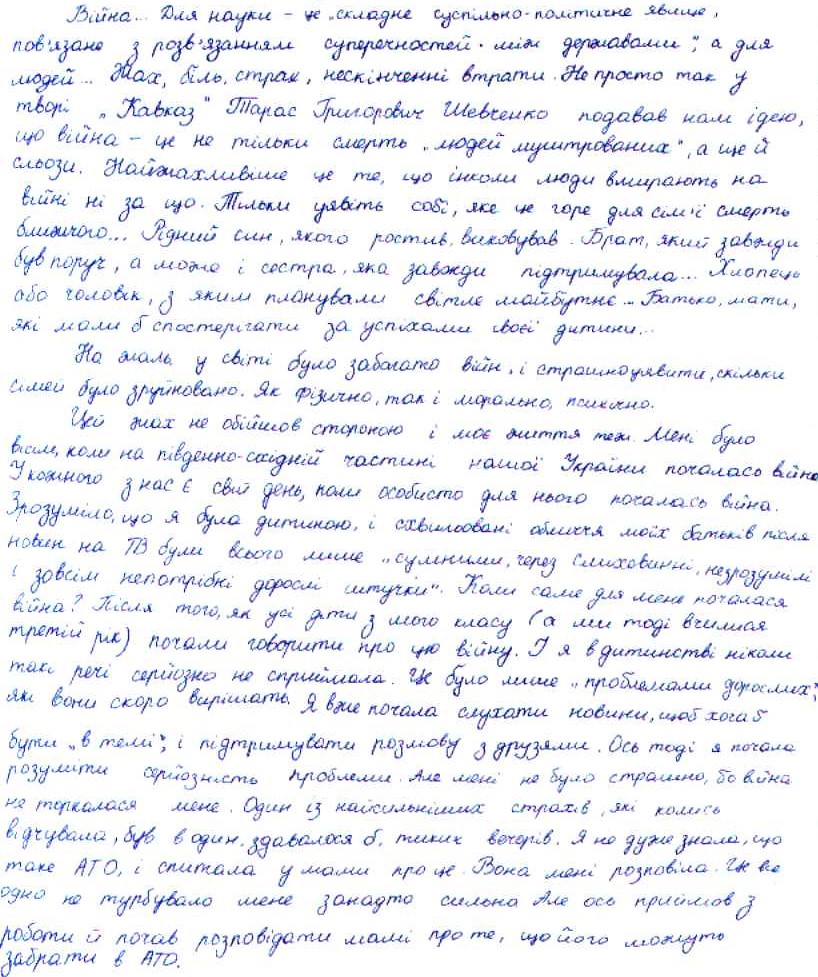 Війна... Для науки – це „складне суспільно-політичне явище,
пов'язане з розв'язанням суперечностей між державами", а для
людей... Жах, біль, страх, нескінченні втрати. Не просто так у
творі „Кавказ" Тарас Григорович Шевченко подавав нам ідею,
що війна – це не тільки смерть „людей муштрованих", а ще й
сльози. Найжахливіше це те, що інколи люди вмирають на
війні ні за що. Тільки уявіть собі, яке це горе для сім'ї смерть
ближчого... Рідний син, якого ростив, виховував. Брат, який завжди
був поруч, а може і сестра, яка завжди підтримувала... Хлопець
або чоловік, з яким планували світле майбутнє... Батько, мати,
які мали б спостерігати за успіхами своєї дитини...
На жаль у світі було забагато війн, і страшно уявити, скільки
сімей було зруйновано. Як фізично, так і морально, психічно.
Цей жах не обійшов стороною і моє життя теж. Мені було
вісім, коли на південно-східній частині нашої України почалась війна
У кожного з нас є свій день, коли особисто для нього почалась війна.
Зрозуміло, що я була дитиною, і схвильовані обличчя моїх батьків після
новин на ТВ були всього лише „сумними, через незрозумілі
і зовсім непотрібні дорослі штучки". Коли саме для мене почалася
війна? Після того, як усі діти з мого класу (а ми тоді вчилися
третій рік) почали говорити про цю війну. І я в дитинстві ніколи
такі речі серйозно не сприймала. Це було лише „проблемами дорослих",
які вони скоро вирішать. Я вже почала слухати новини, щоб хоча б
бути „в темі", і підтримувати розмову з друзями. Ось тоді я почала
розуміти серйозність проблеми. Але мені не було страшно, бо війна
не торкалася мене. Один із найсильніших страхів, які колись
відчувала, був в один, здавалося б, тихих вечорів. Я не дуже знала, що
таке АТО, і спитала у мами про це. Вона мені розповіла. Це все
одно не турбувало мене занадто сильно Але ось прийшов з
роботи й почав розповідати мамі про те, що його можуть
забрати в АТО.